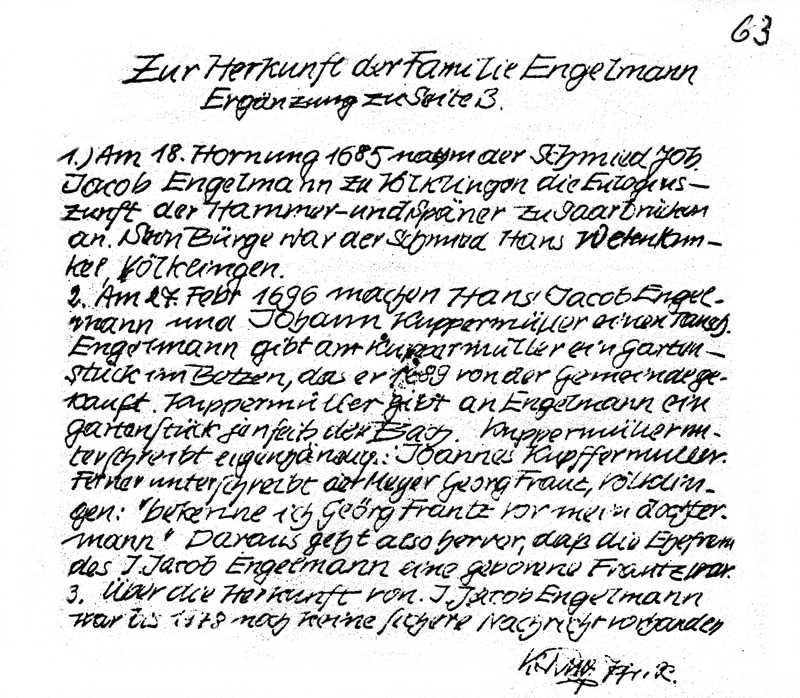 63
Zur Herkunft der Familie Engelmann
Ergänzung zu Seite 3.
1.) Am 18. Hornung 1685 nahm der Schmied Joh.
Jacob Engelmann zu Völklingen die Eulogius-
zunft der Hammer- und Späner zu Saarbrücken
an. Sein Bürge war der Schmied Hans
kel, Völklingen.
2. Am 27. Febr 1696 machen Hans Jacob Engel-
mann und Johann Kuppermüller einen Tausch.
Engelmann gibt am Kuppermüller ein Garten-
stück im Botzen, das er 1689 von der Gemeinde ge-
kauft. Kuppermüller gibt an Engelmann ein
Gartenstück jenseits der Bach. Kuppermüller un-
terschreibt eigenhändig: Joannes Kupffermuller.
Ferner unterschreibt der Meyer Georg Franz, Völklin-
gen: "bekenne ich Geörg Frantz vor mein dochter-
mann" Daraus geht also hervor, daß die Ehefrau
des J. Jacob Engelmann eine geborene Frantz war.
3. Über die Herkunft von J. Jacob Engelmann
war bis 1978 noch keine sichere Nachricht vorhanden